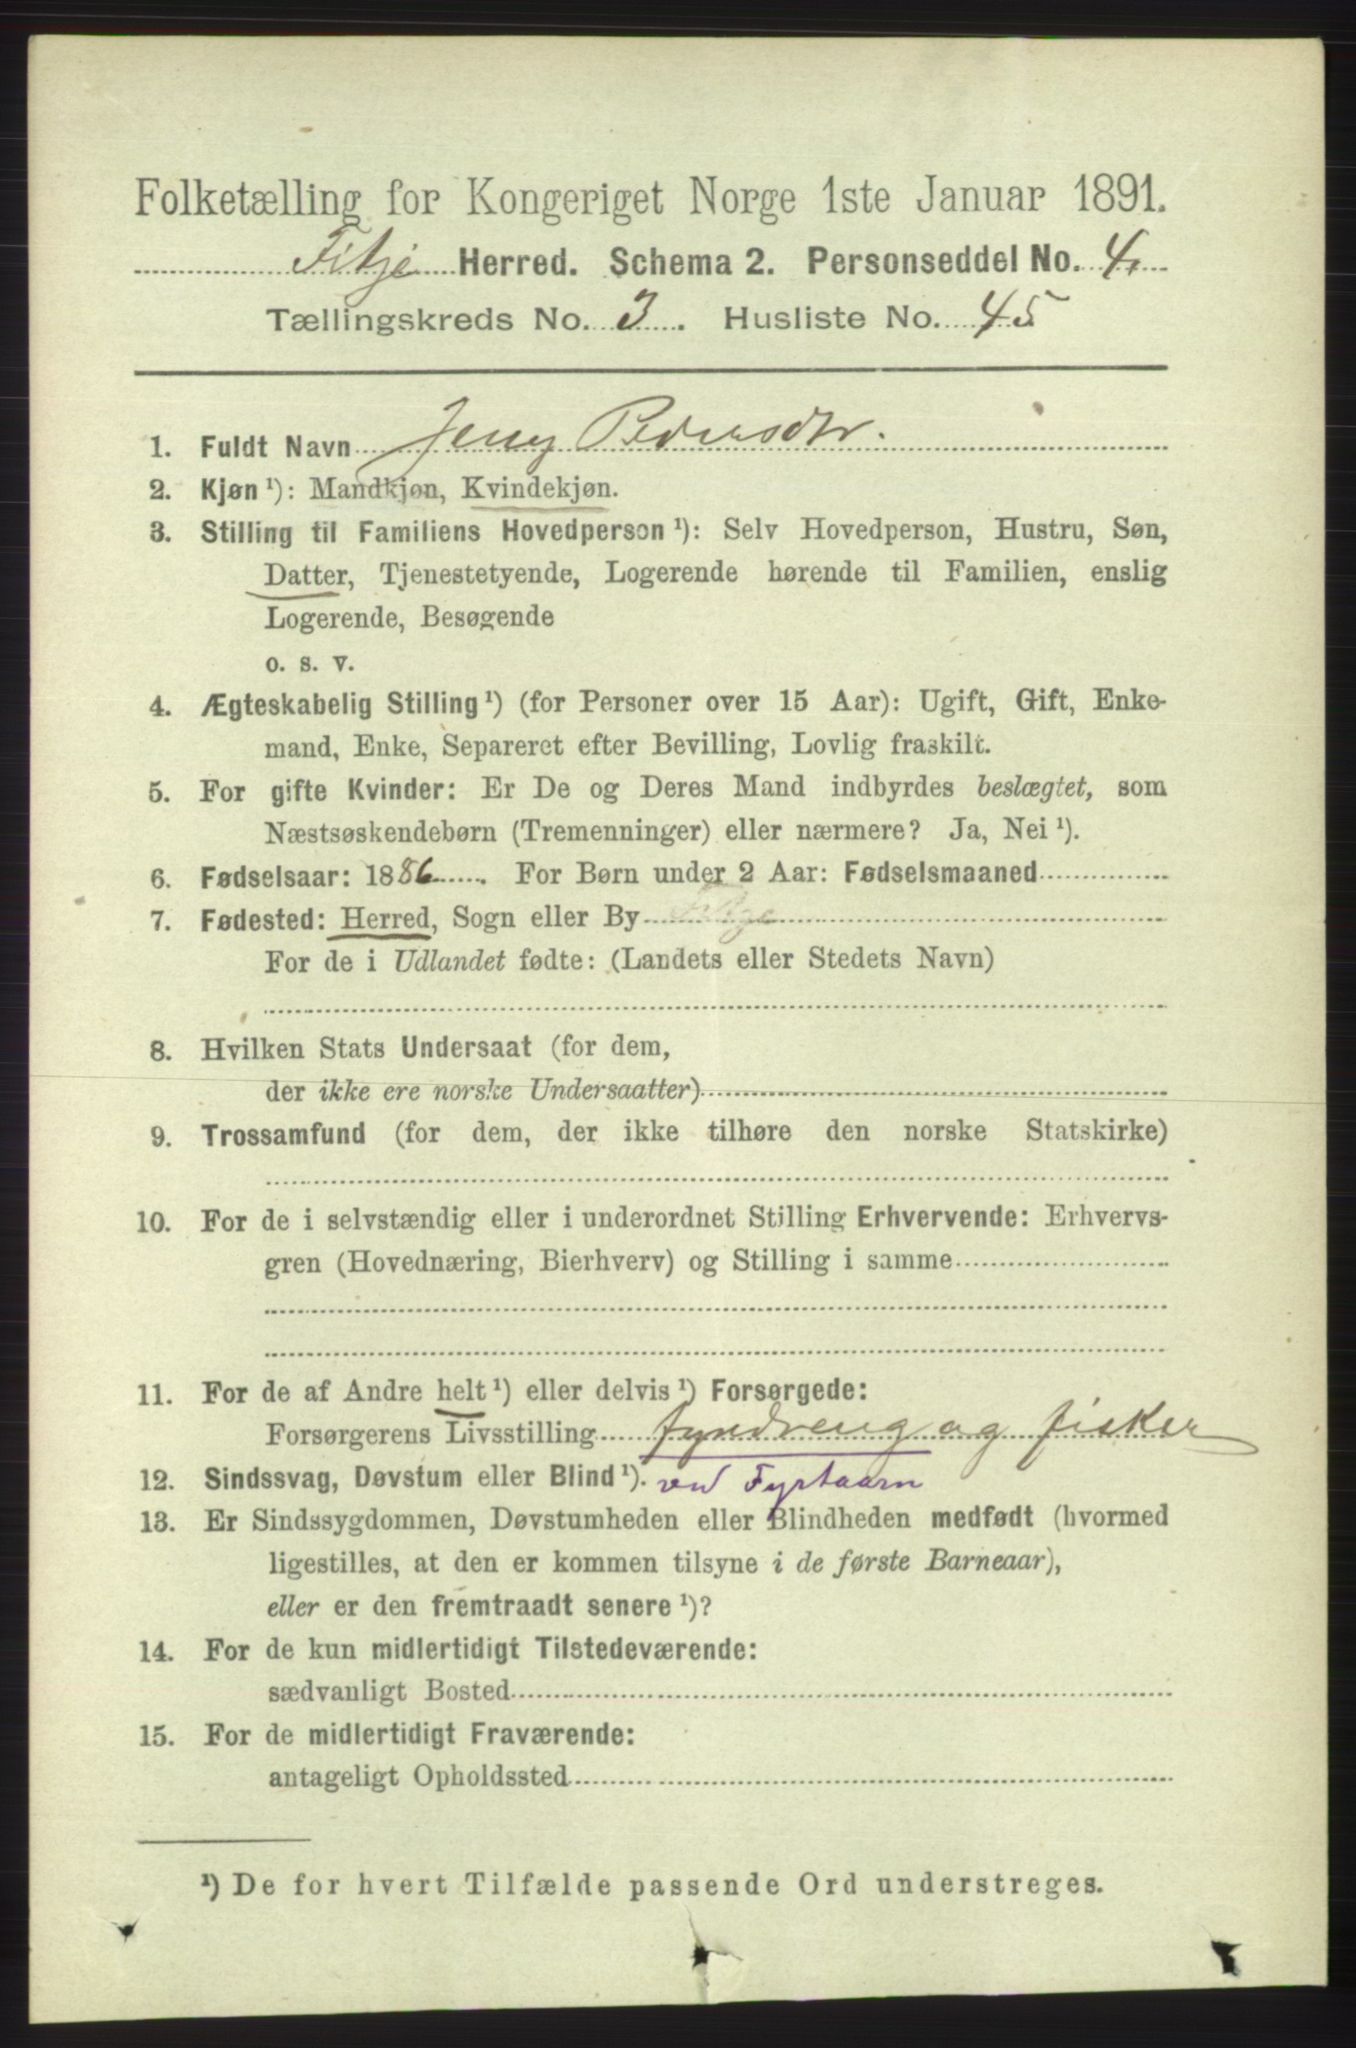 Folketælling for Kongeriget Norge 1ste Januar 1891.
Fitje Herred. Schema 2. Personseddel No. 4.
Tællingskreds No. 3. Husliste No. 45
1. Fuldt Navn Jenny Pedersdtr.
2. Kjøn ¹): Mandkjøn, Kvindekjøn.
3. Stilling til Familiens Hovedperson ¹): Selv Hovedperson, Hustru, Søn,
Datter, Tjenestetyende, Logerende hørende til Familien, enslig
Logerende, Besøgende
o. s. v.
4. Ægteskabelig Stilling ¹) (for Personer over 15 Aar): Ugift, Gift, Enke-
mand, Enke, Separeret efter Bevilling, Lovlig fraskilt.
5. For gifte Kvinder: Er De og Deres Mand indbyrdes beslægtet, som
Næstsøskendebørn (Tremenninger) eller nærmere? Ja, Nei ¹).
6. Fødselsaar: 1886. For Børn under 2 Aar: Fødselsmaaned
7. Fødested: Herred, Sogn eller By Fitje
For de i Udlandet fødte: (Landets eller Stedets Navn)
8. Hvilken Stats Undersaat (for dem,
der ikke ere norske Undersaatter)
9. Trossamfund (for dem, der ikke tilhøre den norske Statskirke)
10. For de i selvstændig eller i underordnet Stilling Erhvervende: Erhvervs-
gren (Hovednæring, Bierhverv) og Stilling i samme
11. For de af Andre helt ¹) eller delvis ¹) Forsørgede:
Forsørgerens Livsstilling fyrdreng og fisker
12. Sindssvag, Døvstum eller Blind ¹). ved Fyrtaarn
13. Er Sindssygdommen, Døvstumheden eller Blindheden medfødt (hvormed
ligestilles, at den er kommen tilsyne i de første Barneaar),
eller er den fremtraadt senere ¹)?
14. For de kun midlertidigt Tilstedeværende:
sædvanligt Bosted
15. For de midlertidigt Fraværende:
antageligt Opholdssted
¹) De for hvert Tilfælde passende Ord understreges.